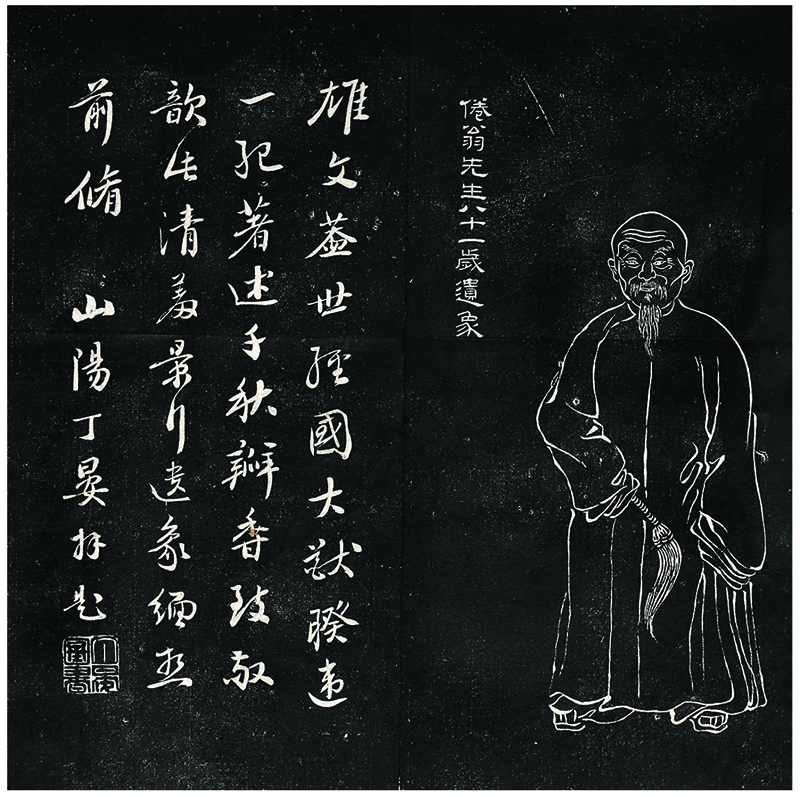 倦翁先生八十一歲遺象
雄文蓋世經國大猷暌違
一紀著述千秋瓣香致敬
歆此清羞景行遺象緬
前脩 山陽丁晏拜題